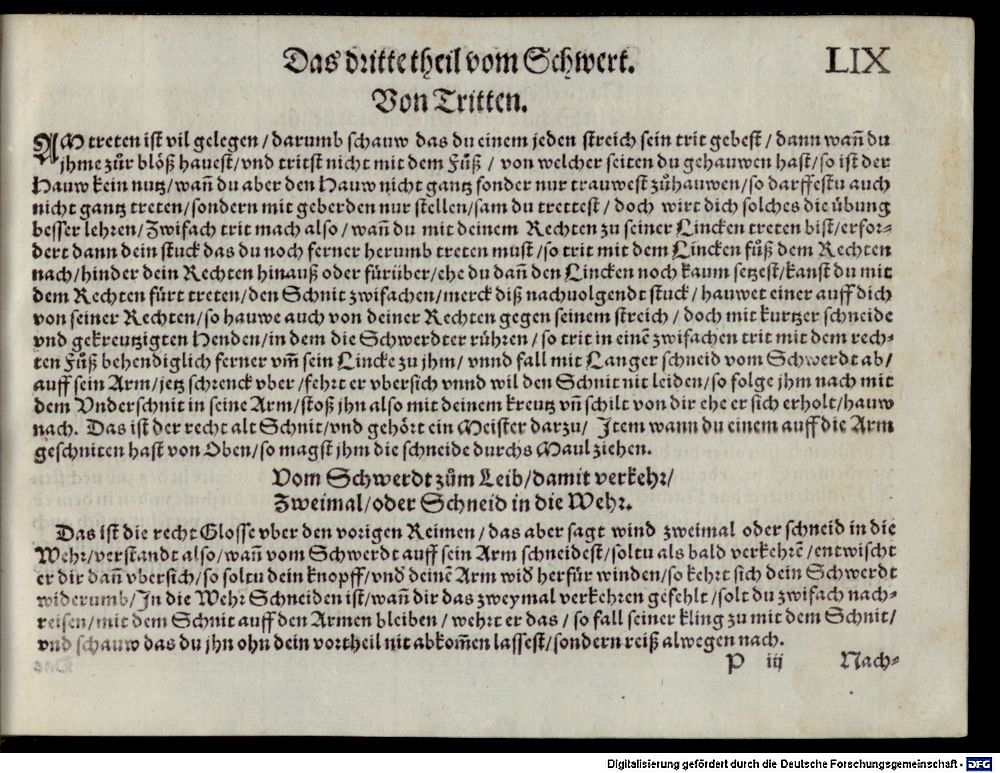 Das dritte theil vom Schwert. LIX
Von Tritten.
AM treten ist vil gelegen / darumb schauw das du einem jeden streich sein trit gebest / dann wañ du
jhme zůr blöß hauest/vnd tritst nicht mit dem Fůß / von welcher seiten du gehauwen hast/so ist der
Hauw kein nutz/wañ du aber den Hauw nicht gantz sonder nur trauwest zůhauwen/so darffestu auch
nicht gantz treten/sondern mit geberden nur stellen/sam du trettest / doch wirt dich solches die übung
besser lehren/Zwifach trit mach also / wañ du mit deinem Rechten zu seiner Lincken treten bist/erfor⸗
dert dann dein stuck das du noch ferner herumb treten must/so trit mit dem Lincken fůß dem Rechten
nach/hinder dein Rechten hinauß oder fürüber/ehe du dañ den Lincken noch kaum setzest/kanst du mit
dem Rechten fürt treten/den Schnit zwifachen/merck diß nachuolgendt stuck / hauwet einer auff dich
von seiner Rechten/so hauwe auch von deiner Rechten gegen seinem streich / doch mit kurtzer schneide
vnd gekreutzigten Henden/in dem die Schwerdter rühren / so trit in einē zwifachen trit mit dem rech⸗
ten Fůß behendiglich ferner vm̃ sein Lincke zu jhm / vnnd fall mit Langer schneid vom Schwerdt ab/
auff sein Arm/jetz schrenck vber /fehrt er vbersich vnnd wil den Schnit nit leiden/so folge jhm nach mit
dem Vnderschnit in seine Arm/stoß jhn also mit deinem kreutz vñ schilt von dir ehe er sich erholt/hauw
nach. Das ist der recht alt Schnit/vnd gehört ein Meister darzu/ Item wann du einem auff die Arm
geschniten hast von Oben/so magst jhm die schneide durchs Maul ziehen.
Vom Schwerdt zům Leib/damit verkehr/
Zweimal/oder Schneid in die Wehr.
Das ist die recht Glosse vber den vorigen Reimen / das aber sagt wind zweimal oder schneid in die
Wehr/verstandt also/wañ vom Schwerdt auff sein Arm schneidest/soltu als bald verkehrē/entwischt
er dir dañ vbersich/so soltu dein knopff/vnd deinē Arm wid herfür winden/so kehrt sich dein Schwerdt
widerumb/In die Wehr Schneiden ist/wañ dir das zweymal verkehren gefehlt /solt du zwifach nach⸗
reisen/mit dem Schnit auff den Armen bleiben / wehrt er das / so fall seiner kling zu mit dem Schnit/
vnd schauw das du jhn ohn dein vortheil nit abkom̃en lassest/sondern reiß alwegen nach.
P iij Nach⸗
Digitalisierung gefördert durch die Deutsche Forschungsgemeinschaft - DFG